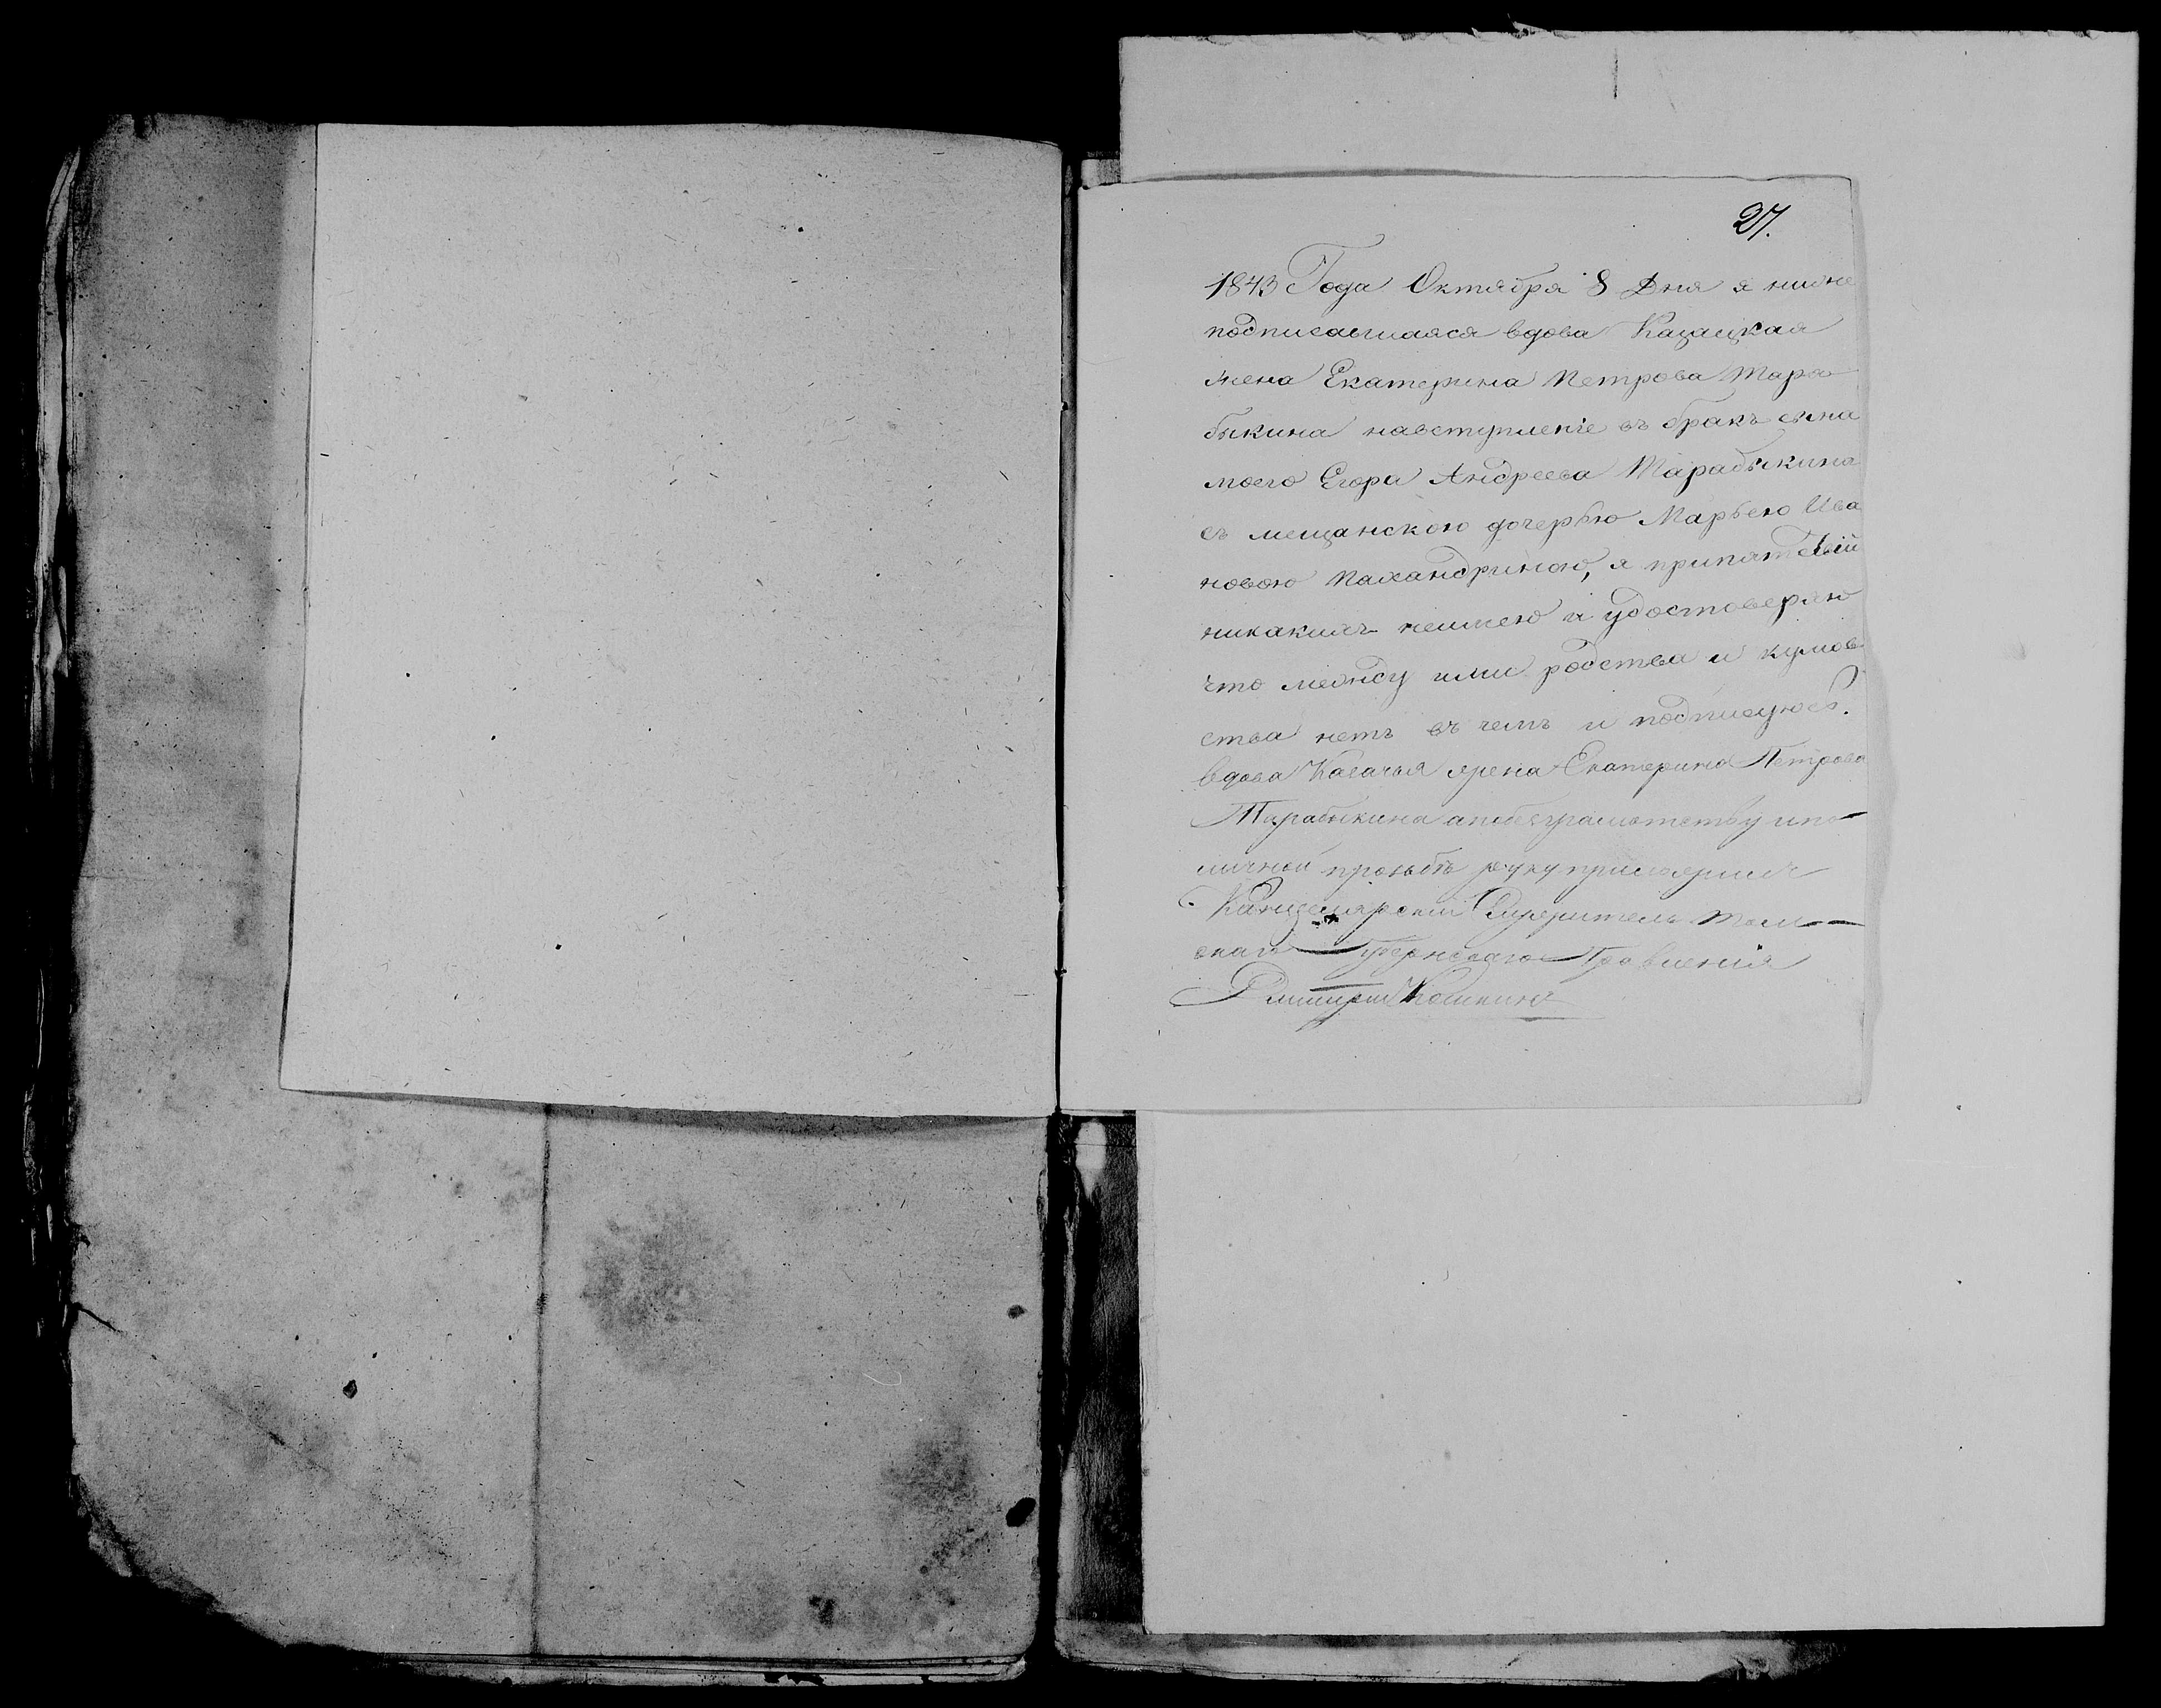 27.
1843 Года Октября 8 Дня я ниже
подписавшаяся вдова Казацкая
жена Екатерина Петрова Тара
быкина навступленіе въ бракъ сына
моего Егора Андреева Тарабыкина
съ мещанскою дочерью Марьею Ива
новою Паландриною, я припятствій
никакихъ неимею и удостоверяю
что между ими родства и кумов
ства нетъ въ чемъ и подписуюсь.
Вдова Казачья жена Екатерина Петрова
Тарабыкина апобезграмотству ипо
личной прозьбѣ руку приложилъ
Канцелярскій Служитель Том
скаго Губернскаго Правленія
Дмитрій